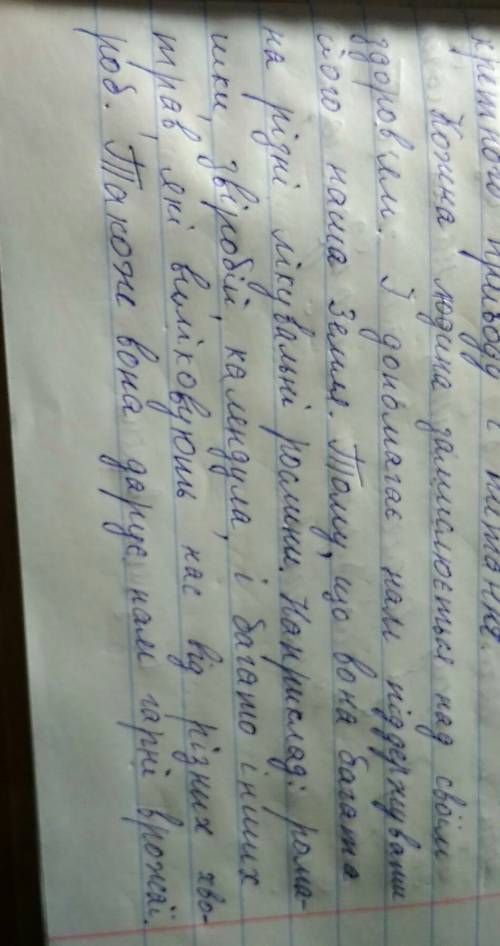 приводу і питання.
Кожна людина замислюється над своїм
здоров'ям. І допомагає нам піддержувати
його наша Земля. Тому, що вона багата
на різні лікувальні рослини. Наприклад: рома-
шки, звіробій, календула, і багато інших
трав, які виліковують нас від різних хво-
роб. Також вона дарує нам гарні врожаї.